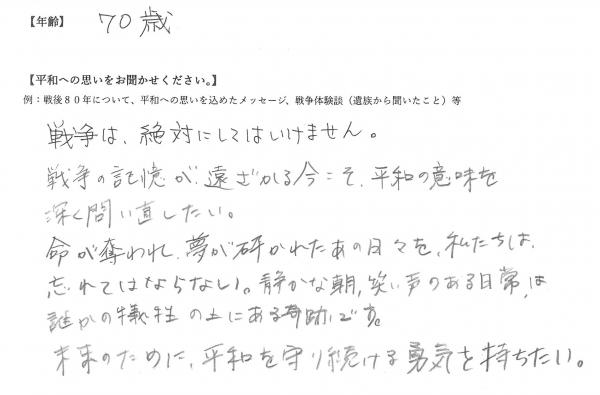 【年齢】 70歳
【平和への思いをお聞かせください。】
例：戦後８０年について、平和への思いを込めたメッセージ、戦争体験談（遺族から聞いたこと）等
戦争は、絶対にしてはいけません。
戦争の記憶が、遠ざかる今こそ、平和の意味を
深く問い直したい。
命が奪われ、夢が砕かれたあの日々を、私たちは、
忘れてはならない。静かな朝、笑い声のある日常は
誰かの犠牲の上にある奇跡です。
未来のために、平和を守り続ける勇気を持ちたい。